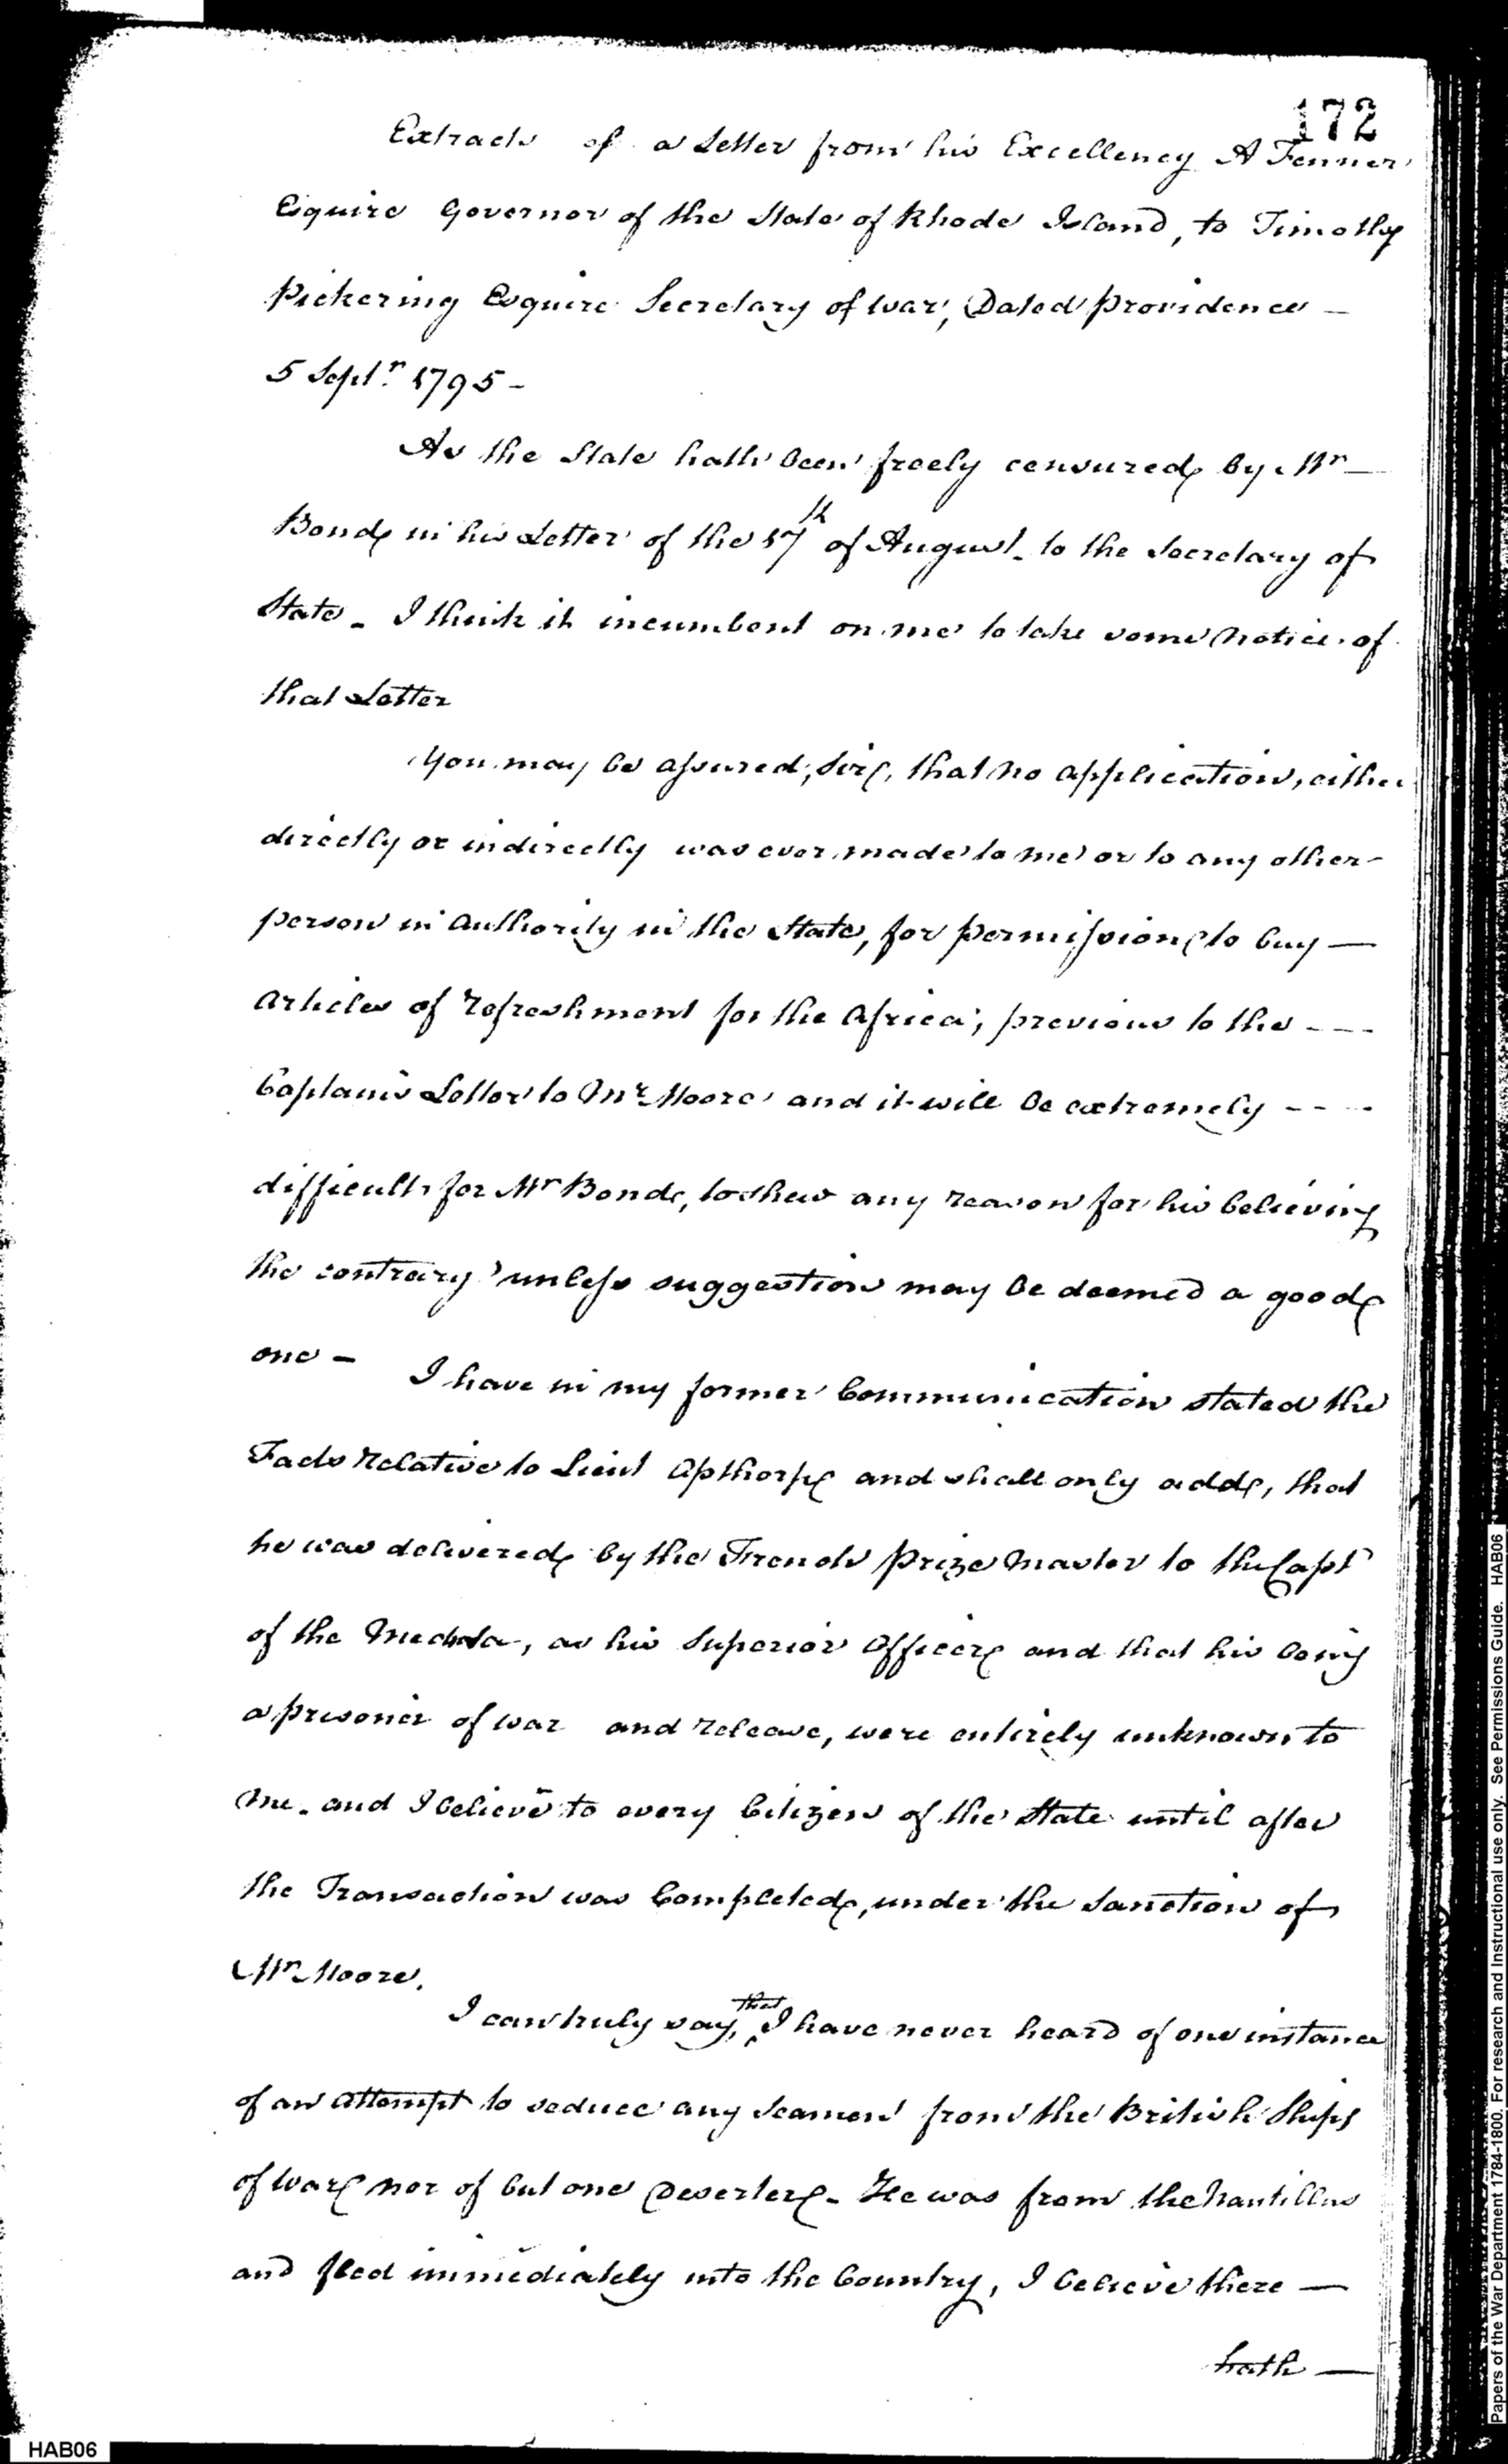 172
Extracts of a Letter from his Excellency A Fenner
Esquire Governor of the State of Rhode Island, to Timothy
Pickering Esquire Secretary of War, Dated Providence —
5 Septr. 1795 -
As the State hath been freely censured by Mr —
Bond in his Letter of the 17th of August to the Secretary of
State - I think it incumbent on me to take some notice of
that Letter
You may be assured, Sir, that no application, either
directly or indirectly was ever made to me or to any other -
person in authority in the State, for permission to buy —
articles of refreshment for the Africa, previous to the - - -
Captain's Letter to Mr. Moore and it will be extremely - - - -
difficult for Mr Bond, to shew any reason for his believing
the contrary unless suggestion may be deemed a good
one - I have in my former Communication stated the
Facts relative to Lieut Apthorp and shall only add, that
he was delivered by the French Prize Master to the Capt
of the Medusa, as his Superior Officer and that his being
a prisoner of war and release, were entirely unknown to
me - and I believe to every Citizen of the State until after
the Transaction was Completed, under the Sanction of
Mr Moore.
I can truly say, that I have never heard of one instance
of an attempt to seduce any Seamen from the British Ships
of War nor of but one Deserter - He was from the Nautillus
and fled immediately into the Country, I believe there —
hath —
HAB06
Papers of the War Department 1784-1800. For research and Instructional use only. See Permissions Guide. HAB06